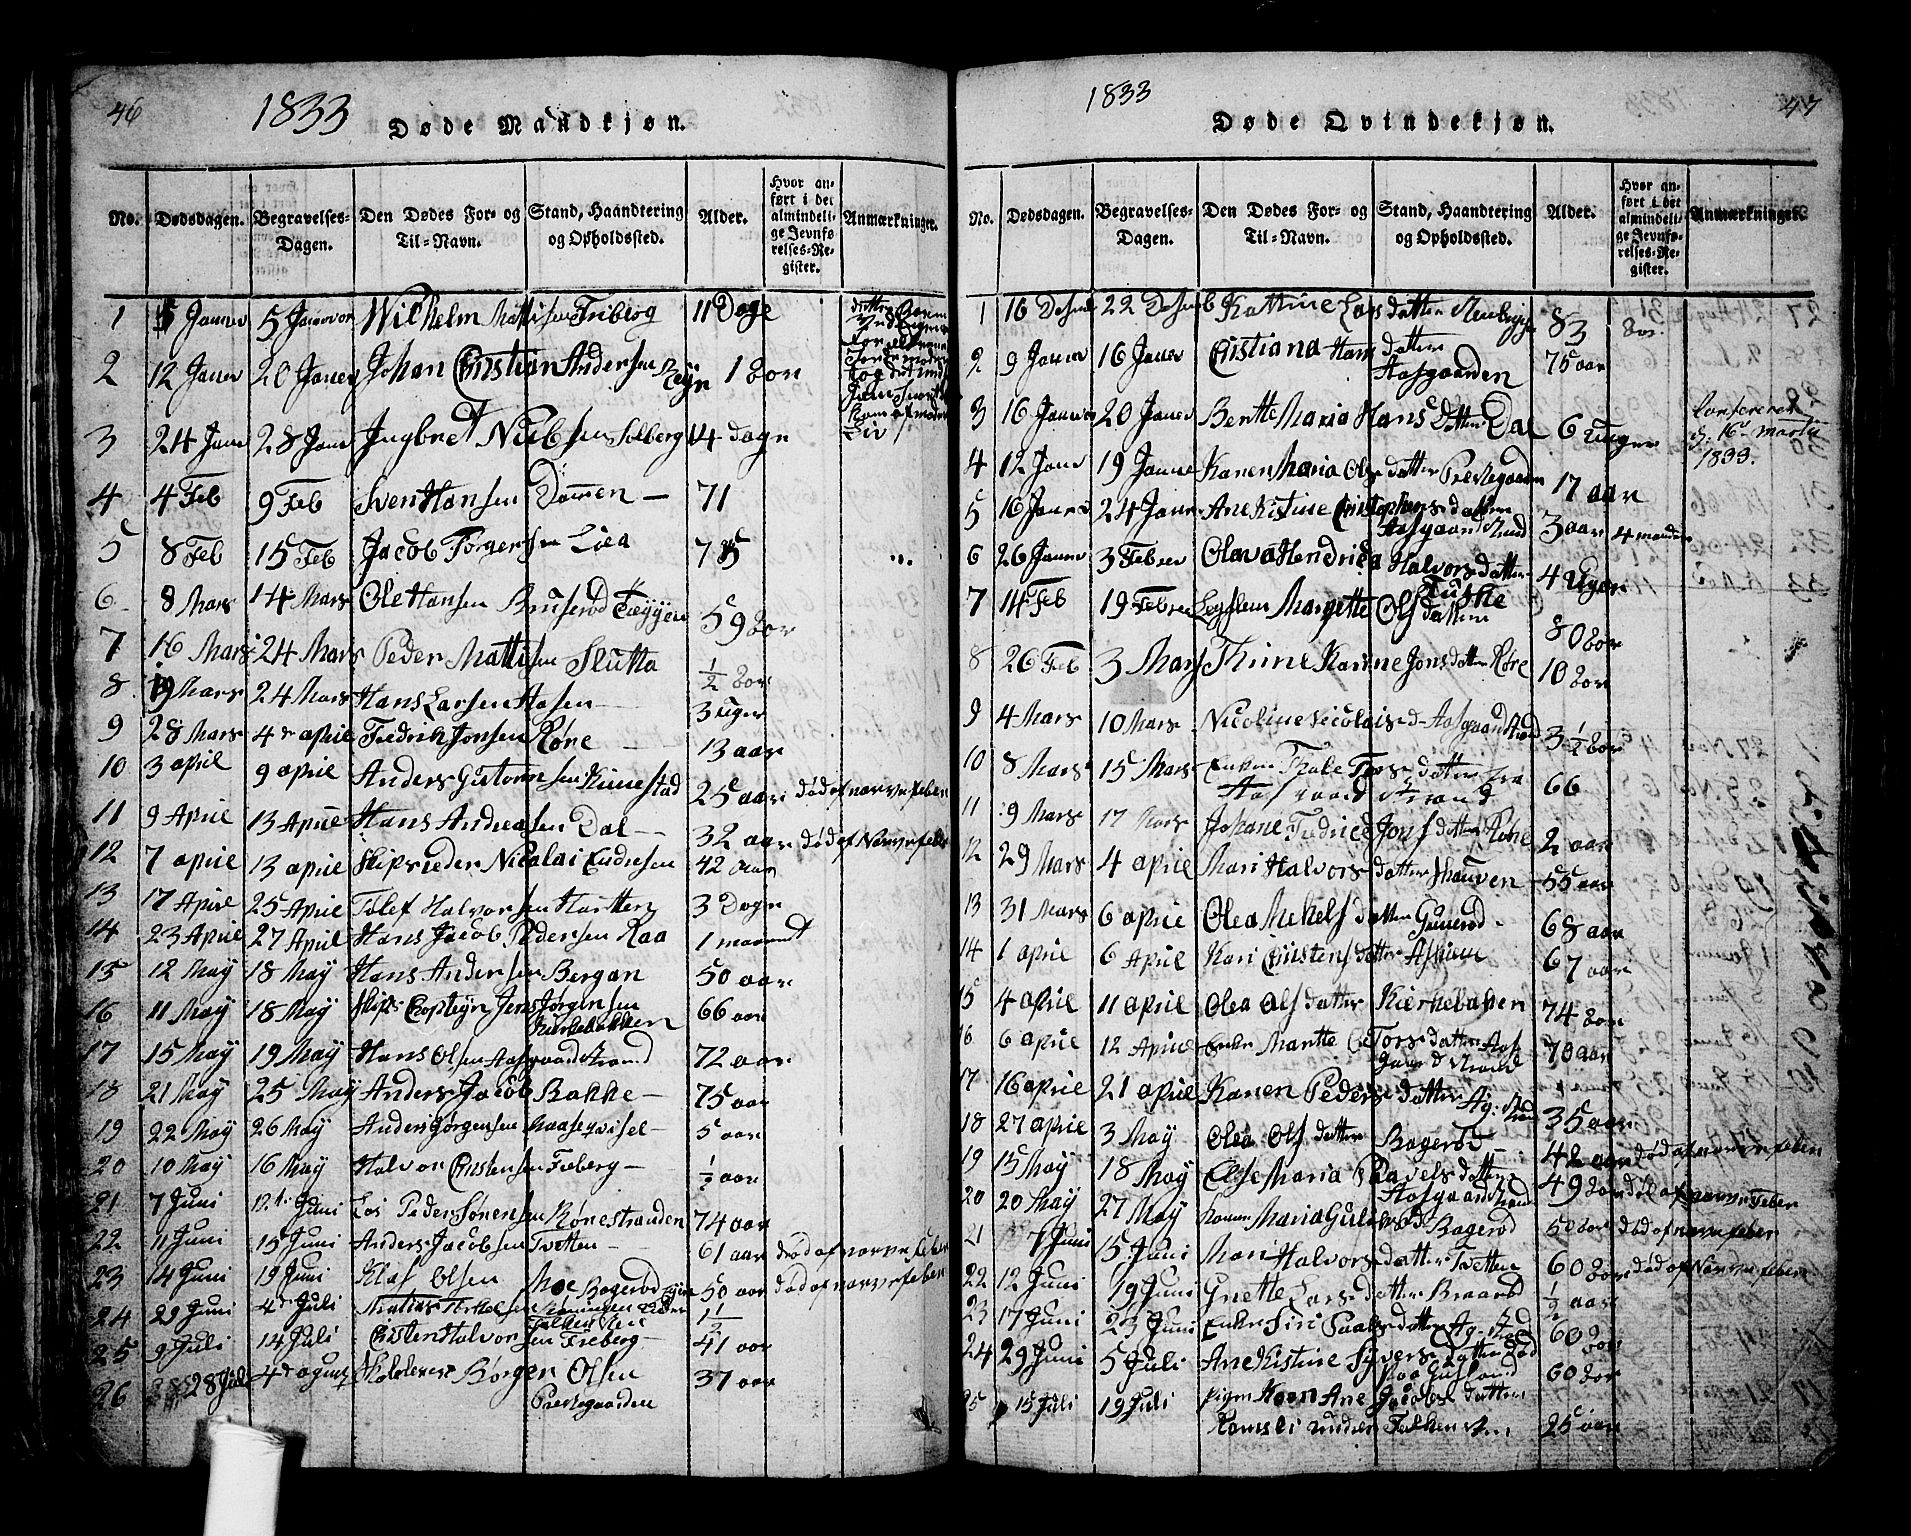 46
1833
Døde Mandkjøn.
No. Dødsdagen. Begravelses-Dagen. Den Dødes For- og Til-Navn. Stand, Haandtering og Opholdssted. Alder. Hvor anført i det almindelige Jevnførelses-Register. Anmærkninger.
1 5 Janev 5 Janevar Wilhelm Mattisen Friberg 11 Dage
2 12 Janev 20 Janev Johan Cristian Andersen 1 Eor
3 24 Jane 28 Jane Ingbret Nielsen Solberg 14 dagr
4 4 Feb 9 Feb Sven Hansen Dammen — 71
5 8 Feb 15 Feb Jacob Torgersen Liea 75
6 8 Mars 14 Mars Ole Hansen Bruserød Eieyen 59 Eor
7 16 Mars 24 Mars Peder Mattisen Slutta ½ Eor
8 19 Mars 24 Mars Hans Larsen Aasen — 3 uger
9 28 Mars 4de april Fredrik Jonsen Røre — 13 aar
10 3 april 9 april Anders Guttormsen Kinnestad 25 aar død af nerve feber
11 9 April 13 April Hans Andreasen Dal — 32 aar død af Nerve feber
12 7 april 13 april Skipsreder Nicolai Endresen 42 aar
13 17 April 25 April Tolef Halvorsen Hortten 3 Dagr
14 23 April 27 April Hans Jacob Pedersen Raa 1 maanet
15 12 May 18 May Hans Andersen Bergan 50 aar
16 11 May 18 May Skips Capteyn Jens Jørgensen Kirkebakken 66 aar
17 15 May 19 May Hans Olsen Aasgaardstrand 72 aar
18 21 May 25 May Anders Jacob Bakke — 75 aar
19 22 May 26 May Anders Jørgensen Maaseqvisel — 5 aar
20 10 May 16 May Halvor Cristensen Freberg — ½ aar
21 7 Juni 12 Juni Los Peder Sørensen Rørestranden 74 aar
22 11 Juni 15 Juni Anders Jacobsen Tvetten — 61 aar død af nerve feber
23 14 Juni 19 Juni Klas Olsen Moe Bagerød eyen 50 aar død af nerve feber
24 29 Juni 4de Juli Falkensten 1½
25 9 Juli 14 Juli Cristen Halvorsen Freberg — 41 aar
26 28 Juli 4de agust Skolelerer Børger Olsen Prestegaarden 37 aar
1833
47
Døde Qvindekjøn.
No. Dødsdagen. Begravelses-Dagen. Den Dødes For- og Til-Navn. Stand, Haandtering og Opholdssted. Alder. Hvor anført i det almindelige Jevnførelses-Register. Anmærkninger.
1 16 Desem 22 Desemb Kattrine Larsdatter 83 Eor
2 9 Janev 16 Janev Cristiana Hansdatter Aasgaarden 75 aar
3 16 Janev 20 Janev Berthe Maria Hansdatter Dal 6 uuger Confereret d. 16de Martii 1833.
4 12 Jane 19 Janev Karen Maria Olsdatter Prestegaarden 17 aar
5 16 Janev 24 Janev Ane Kistine Cristophersdatter Aasgaardstrand 3 aar 4 maaneder
6 26 Janev 3 Febrev Olava Hendrica Halvorsdatter 4 Uger
7 14 Feb 19 Febrev Margrette Olsdatter 80 Eor
8 26 Feb 3 Mars Thrine Karine Jonsdatter Røre 10 Eor
9 4 Mars 10 Mars Nicoline Nicolaisd. Aasgaardstrand 3½ Eor
10 8 Mars 15 Mars Enken Thale Torsdatter fra Aasgaardstrand 66
11 9 Mars 17 Mars Johane Fredrice Jonsdatter Røre 2 aar
12 29 Mars 4 aprile Mari Halvorsdatter Skauven 55 aar
13 31 Mars 6 aprile Olea Mekelsdatter Gunnerød 68 aar
14 1 april 6 April Kari Cristensdatter Askiem 67 aar
15 4 april 11 april Olea Olsdatter Kirkebaken 74 Eor
16 6 april 12 April Enke Martte C Torsdatter Aasgaardstrand 70 aar
17 16 april 21 april Karen Pedersdatter Ag: strand 35 aar
18 27 april 3 May Olea Olsdatter Bagerød 42 aar død af nerve feber
19 15 May 18 May Else Maria Pavelsdatter Aasgaardstrand 49 Eor død af nerve Feber
20 20 May 27 May Maria Gulichsd. Bagerød 50 Eor død af nerve feber
21 7 Juni 15 Juni Mari Halvorsdatter Tvetten 60 Eor død af Nerve feber
22 12 Juni 19 Juni Grette Larsdatter Braarød ½ aar
23 17 Juni 23 Juni Enke Siri Paalsdatter Ag: strand 60 Eor
24 29 Juni 5 Juli Ane Kistine Syversdatter 60 Eor
25 15 Juli 19 Juli pigen Karen Ane Jacobsdatter Ramsli under Falkensten 25 aar